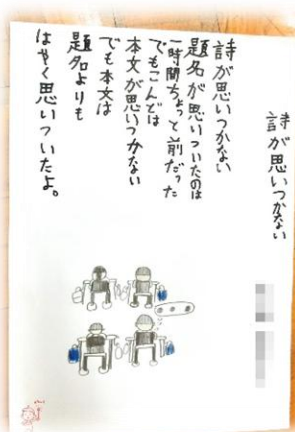 詩が思いつかない
詩が思いつかない
題名が思いついたのは
一時間ちょっと前だった
でもこんどは
本文が思いつかない
でも本文は
題名よりも
はやく思いついたよ。